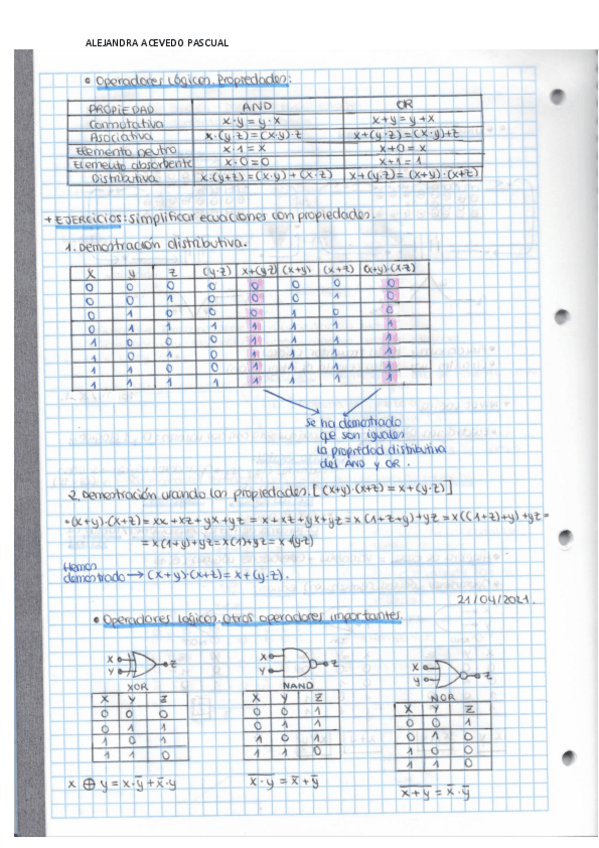 ALEJANDRA ACEVEDO PASCUAL
• Operadores lógicos. Propiedades:
PROPIEDAD AND OR
Conmutativa x·y = y·x x+y = y+x
Asociativa x·(y·z) = (x·y)·z x+(y·z) = (x·y)+z
Elemento neutro x·1 = x x+0 = x
Elemento absorbente x·0 = 0 x+1 = 1
Distributiva x·(y+z) = (x·y) + (x·z) x+(y·z) = (x+y)·(x+z)
+ EJERCICIOS: Simplificar ecuaciones con propiedades.
1. Demostración distributiva.
x y z (y·z) x+(y·z) (x+y) (x+z) (x+y)·(x·z)
0 0 0 0 0 0 0 0
0 0 1 0 0 0 1 0
0 1 0 0 0 1 0 0
0 1 1 1 1 1 1 1
1 0 0 0 1 1 1 1
1 0 1 0 1 1 1 1
1 1 0 0 1 1 1 1
1 1 1 1 1 1 1 1
Se ha demostrado
que son iguales
la propiedad distributiva
del AND y OR.
2. Demostración usando las propiedades. [(x+y)·(x+z) = x+(y·z)]
• (x+y)·(x+z) = xx + xz + yx + yz = x + xz + yx + yz = x(1+z+y) + yz = x((1+z)+y) + yz =
= x(1+y) + yz = x(1) + yz = x+(y·z)
Hemos
demostrado → (x+y)·(x+z) = x+(y·z).
21/04/2021.
• Operadores lógicos. Otros operadores importantes.
X Y Z X Y Z X Y Z
XOR NAND NOR
X Y Z X Y Z X Y Z
0 0 0 0 0 1 0 0 1
0 1 1 0 1 1 0 1 0
1 0 1 1 0 1 1 0 0
1 1 0 1 1 0 1 1 0
x ⊕ y = x·y̅ + x̅·y x̅·̅y̅ = x̅ + y̅ x̅+̅y̅ = x̅·y̅